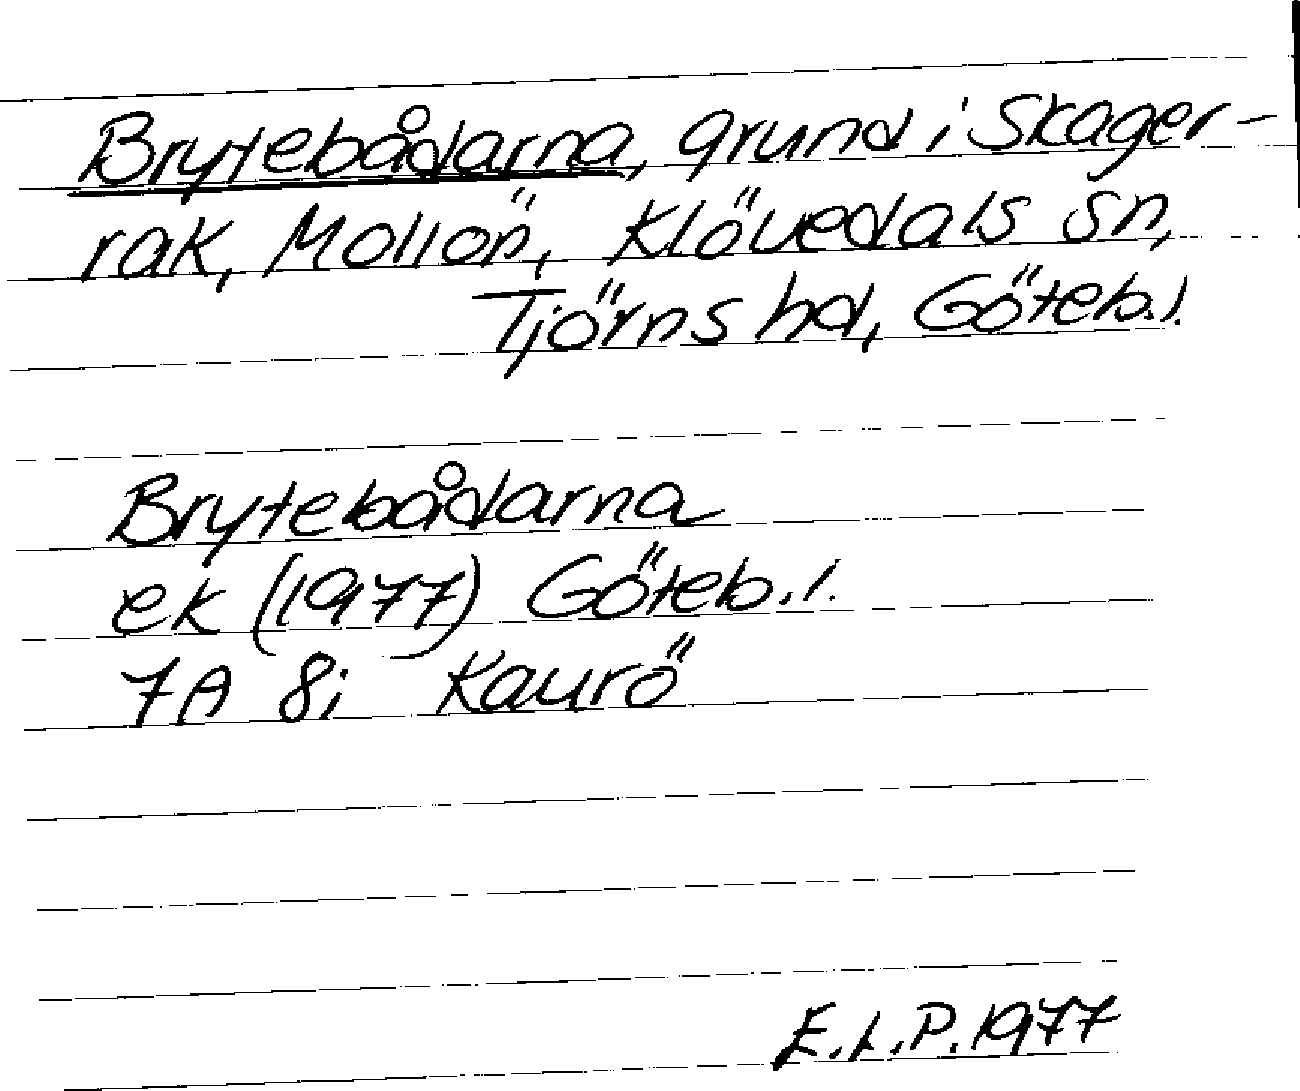 Brytebådarna, grund i Skager-
rak, Mollön, Klövedals sn,
Tjörns hd, Göteb.l.
Brytebådarna
ek (1977) Göteb.l.
7A 8i Kaurö
E.L.P. 1977